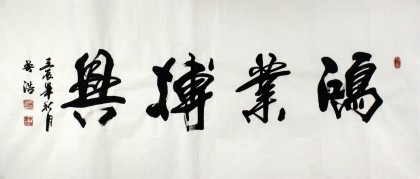 鴻業搏興
壬辰年秋月
岳浩